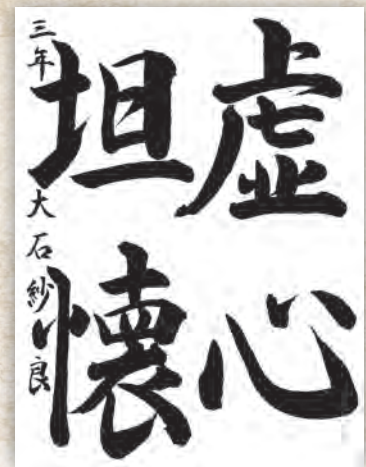 虚心
坦懐
三年 大石紗良